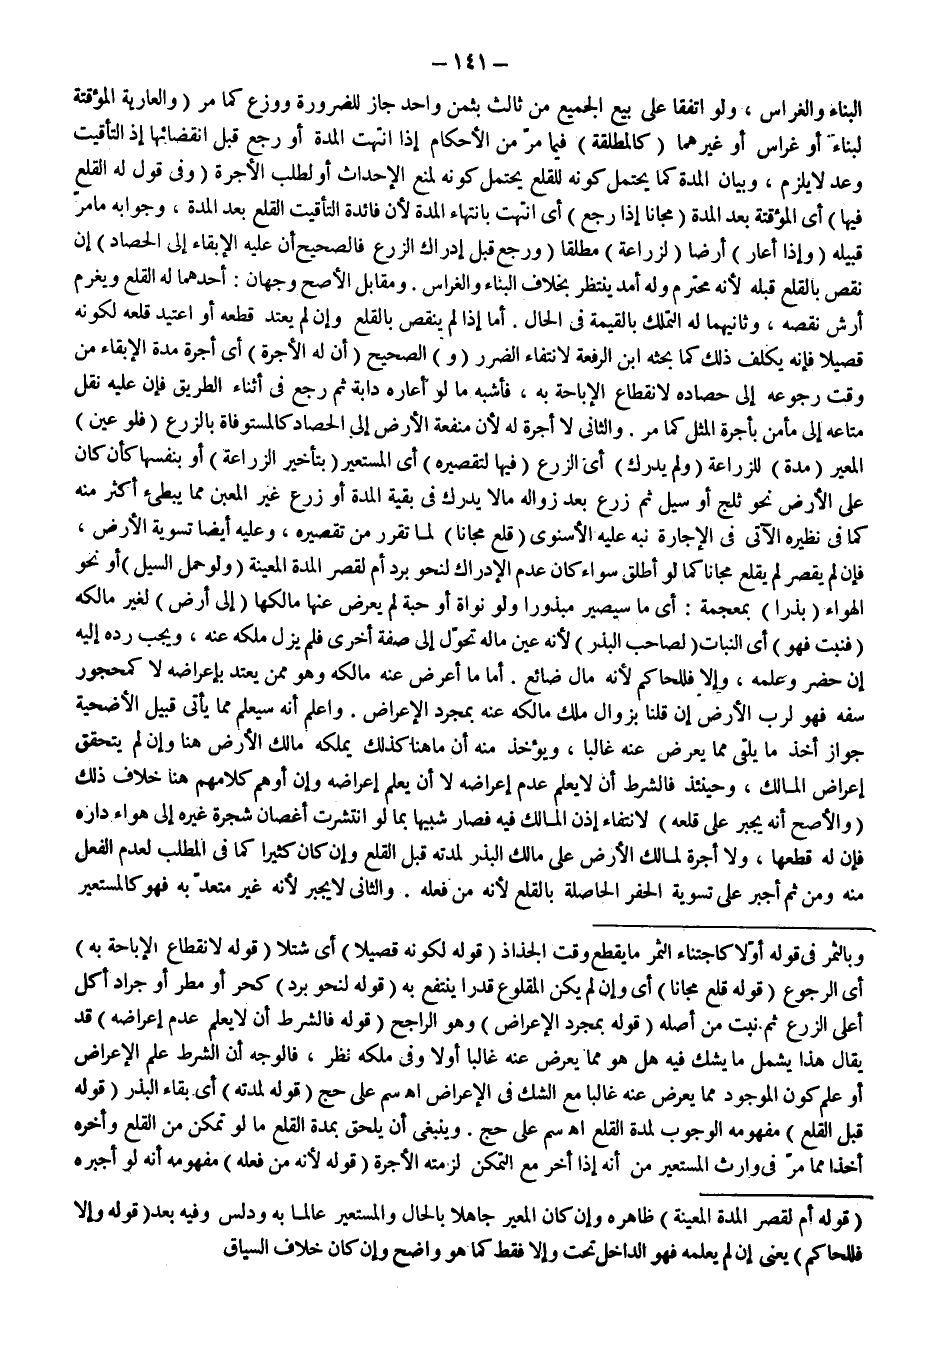 – ١٤١ –
البناء والغراس ، ولو اتفقا على بيع الجميع من ثالث بثمن واحد جاز للضرورة ووزع كما مر ( والعارية المؤقتة
لبناء أو غراس أو غيرهما ( كالمطلقة ) فيما مرّ من الأحكام إذا انتهت المدة أو رجع قبل انقضائها إذ التأقيت
وعد لايلزم ، وبيان المدة كما يحتمل كونه للقلع يحتمل كونه لمنع الإحداث أو لطلب الأجرة ( وفى قول له القلع
فيها ) أى المؤقتة بعد المدة ( مجانا إذا رجع ) أى انتهت بانتهاء المدة لأن فائدة التأقيت القلع بعد المدة ، وجوابه مامرّ
قبيله ( وإذا أعار ) أرضا ( لزراعة ) مطلقا ( ورجع قبل إدراك الزرع فالصحيح أن عليه الإبقاء إلى الحصاد ) إن
نقص بالقلع قبله لأنه محترم وله أمد ينتظر بخلاف البناء والغراس . ومقابل الأصح وجهان : أحدهما له القلع ويغرم
أرش نقصه ، وثانيهما له التملك بالقيمة فى الحال . أما إذا لم ينقص بالقلع وإن لم يعتد قطعه أو اعتيد قلعه لكونه
قصيلا فإنه يكلف ذلك كما بحثه ابن الرفعة لانتفاء الضرر ( و ) الصحيح ( أن له الأجرة ) أى أجرة مدة الإبقاء من
وقت رجوعه إلى حصاده لانقطاع الإباحة به ، فأشبه ما لو أعاره دابة ثم رجع فى أثناء الطريق فإن عليه نقل
متاعه إلى مأمن بأجرة المثل كما مر . والثانى لا أجرة له لأن منفعة الأرض إلى الحصاد كالمستوفاة بالزرع ( فلو عين )
المعير ( مدة ) للزراعة ( ولم يدرك ) أى الزرع ( فيها لتقصيره ) أى المستعير ( بتأخير الزراعة ) أو بنفسها كأن كان
على الأرض نحو ثلج أو سيل ثم زرع بعد زواله مالا يدرك فى بقية المدة أو زرع غير المعين مما يبطئ أكثر منه
كما فى نظيره الآتى فى الإجارة نبه عليه الأسنوى ( قلع مجانا ) لما تقرر من تقصيره ، وعليه أيضا تسوية الأرض ،
فإن لم يقصر لم يقلع مجانا كما لو أطلق سواء كان عدم الإدراك لنحو برد أم لقصر المدة المعينة ( ولو حمل السيل ) أو نحو
الهواء ( بذرا ) بمعجمة : أى ما سيصير مبذورا ولو نواة أو حبة لم يعرض عنها مالكها ( إلى أرض ) لغير مالكه
( فنبت فهو ) أى النبات ( لصاحب البذر ) لأنه عين ماله تحوّل إلى صفة أخرى فلم يزل ملكه عنه ، ويجب رده إليه
إن حضر وعلمه ، وإلا فللحاكم لأنه مال ضائع . أما ما أعرض عنه مالكه وهو ممن يعتد بإعراضه لا كمحجور
سفه فهو لرب الأرض إن قلنا بزوال ملك مالكه عنه بمجرد الإعراض . واعلم أنه سيعلم مما يأتى قبيل الأضحية
جواز أخذ ما يلقى مما يعرض عنه غالبا ، ويؤخذ منه أن ماهنا كذلك يملكه مالك الأرض هنا وإن لم يتحقق
إعراض المالك ، وحينئذ فالشرط أن لايعلم عدم إعراضه لا أن يعلم إعراضه وإن أوهم كلامهم هنا خلاف ذلك
( والأصح أنه يجبر على قلعه ) لانتفاء إذن المالك فيه فصار شبيها بما لو انتشرت أغصان شجرة غيره إلى هواء داره
فإن له قطعها ، ولا أجرة لمالك الأرض على مالك البذر لمدته قبل القلع وإن كان كثيرا كما فى المطلب لعدم الفعل
منه ومن ثم أجبر على تسوية الحفر الحاصلة بالقلع لأنه من فعله . والثانى لايجبر لأنه غير متعدّ به فهو كالمستعير
وبالثمر فى قوله أوّلا كاجتناء الثمر مايقطع وقت الجذاذ ( قوله لكونه قصيلا ) أى شتلا ( قوله لانقطاع الإباحة به )
أى الرجوع ( قوله قلع مجانا ) أى وإن لم يكن المقلوع قدرا ينتفع به ( قوله لنحو برد ) كحر أو مطر أو جراد أكل
أعلى الزرع ثم نبت من أصله ( قوله بمجرد الإعراض ) وهو الراجح ( قوله فالشرط أن لايعلم عدم إعراضه ) قد
يقال هذا يشمل ما يشك فيه هل هو مما يعرض عنه غالبا أولا وفى ملكه نظر ، فالوجه أن الشرط علم الإعراض
أو علم كون الموجود مما يعرض عنه غالبا مع الشك فى الإعراض اه سم على حج ( قوله لمدته ) أى بقاء البذر ( قوله
قبل القلع ) مفهومه الوجوب لمدة القلع اه سم على حج . وينبغى أن يلحق بمدة القلع ما لو تمكن من القلع وأخره
أخذا مما مرّ فى وارث المستعير من أنه إذا أخر مع التمكن لزمته الأجرة ( قوله لأنه من فعله ) مفهومه أنه لو أجبره
( قوله أم لقصر المدة المعينة ) ظاهره وإن كان المعير جاهلا بالحال والمستعير عالما به ودلس وفيه بعد ( قوله وإلا
فللحاكم ) يعنى إن لم يعلمه فهو الداخل تحت وإلا فقط كما هو واضح وإن كان خلاف السياق